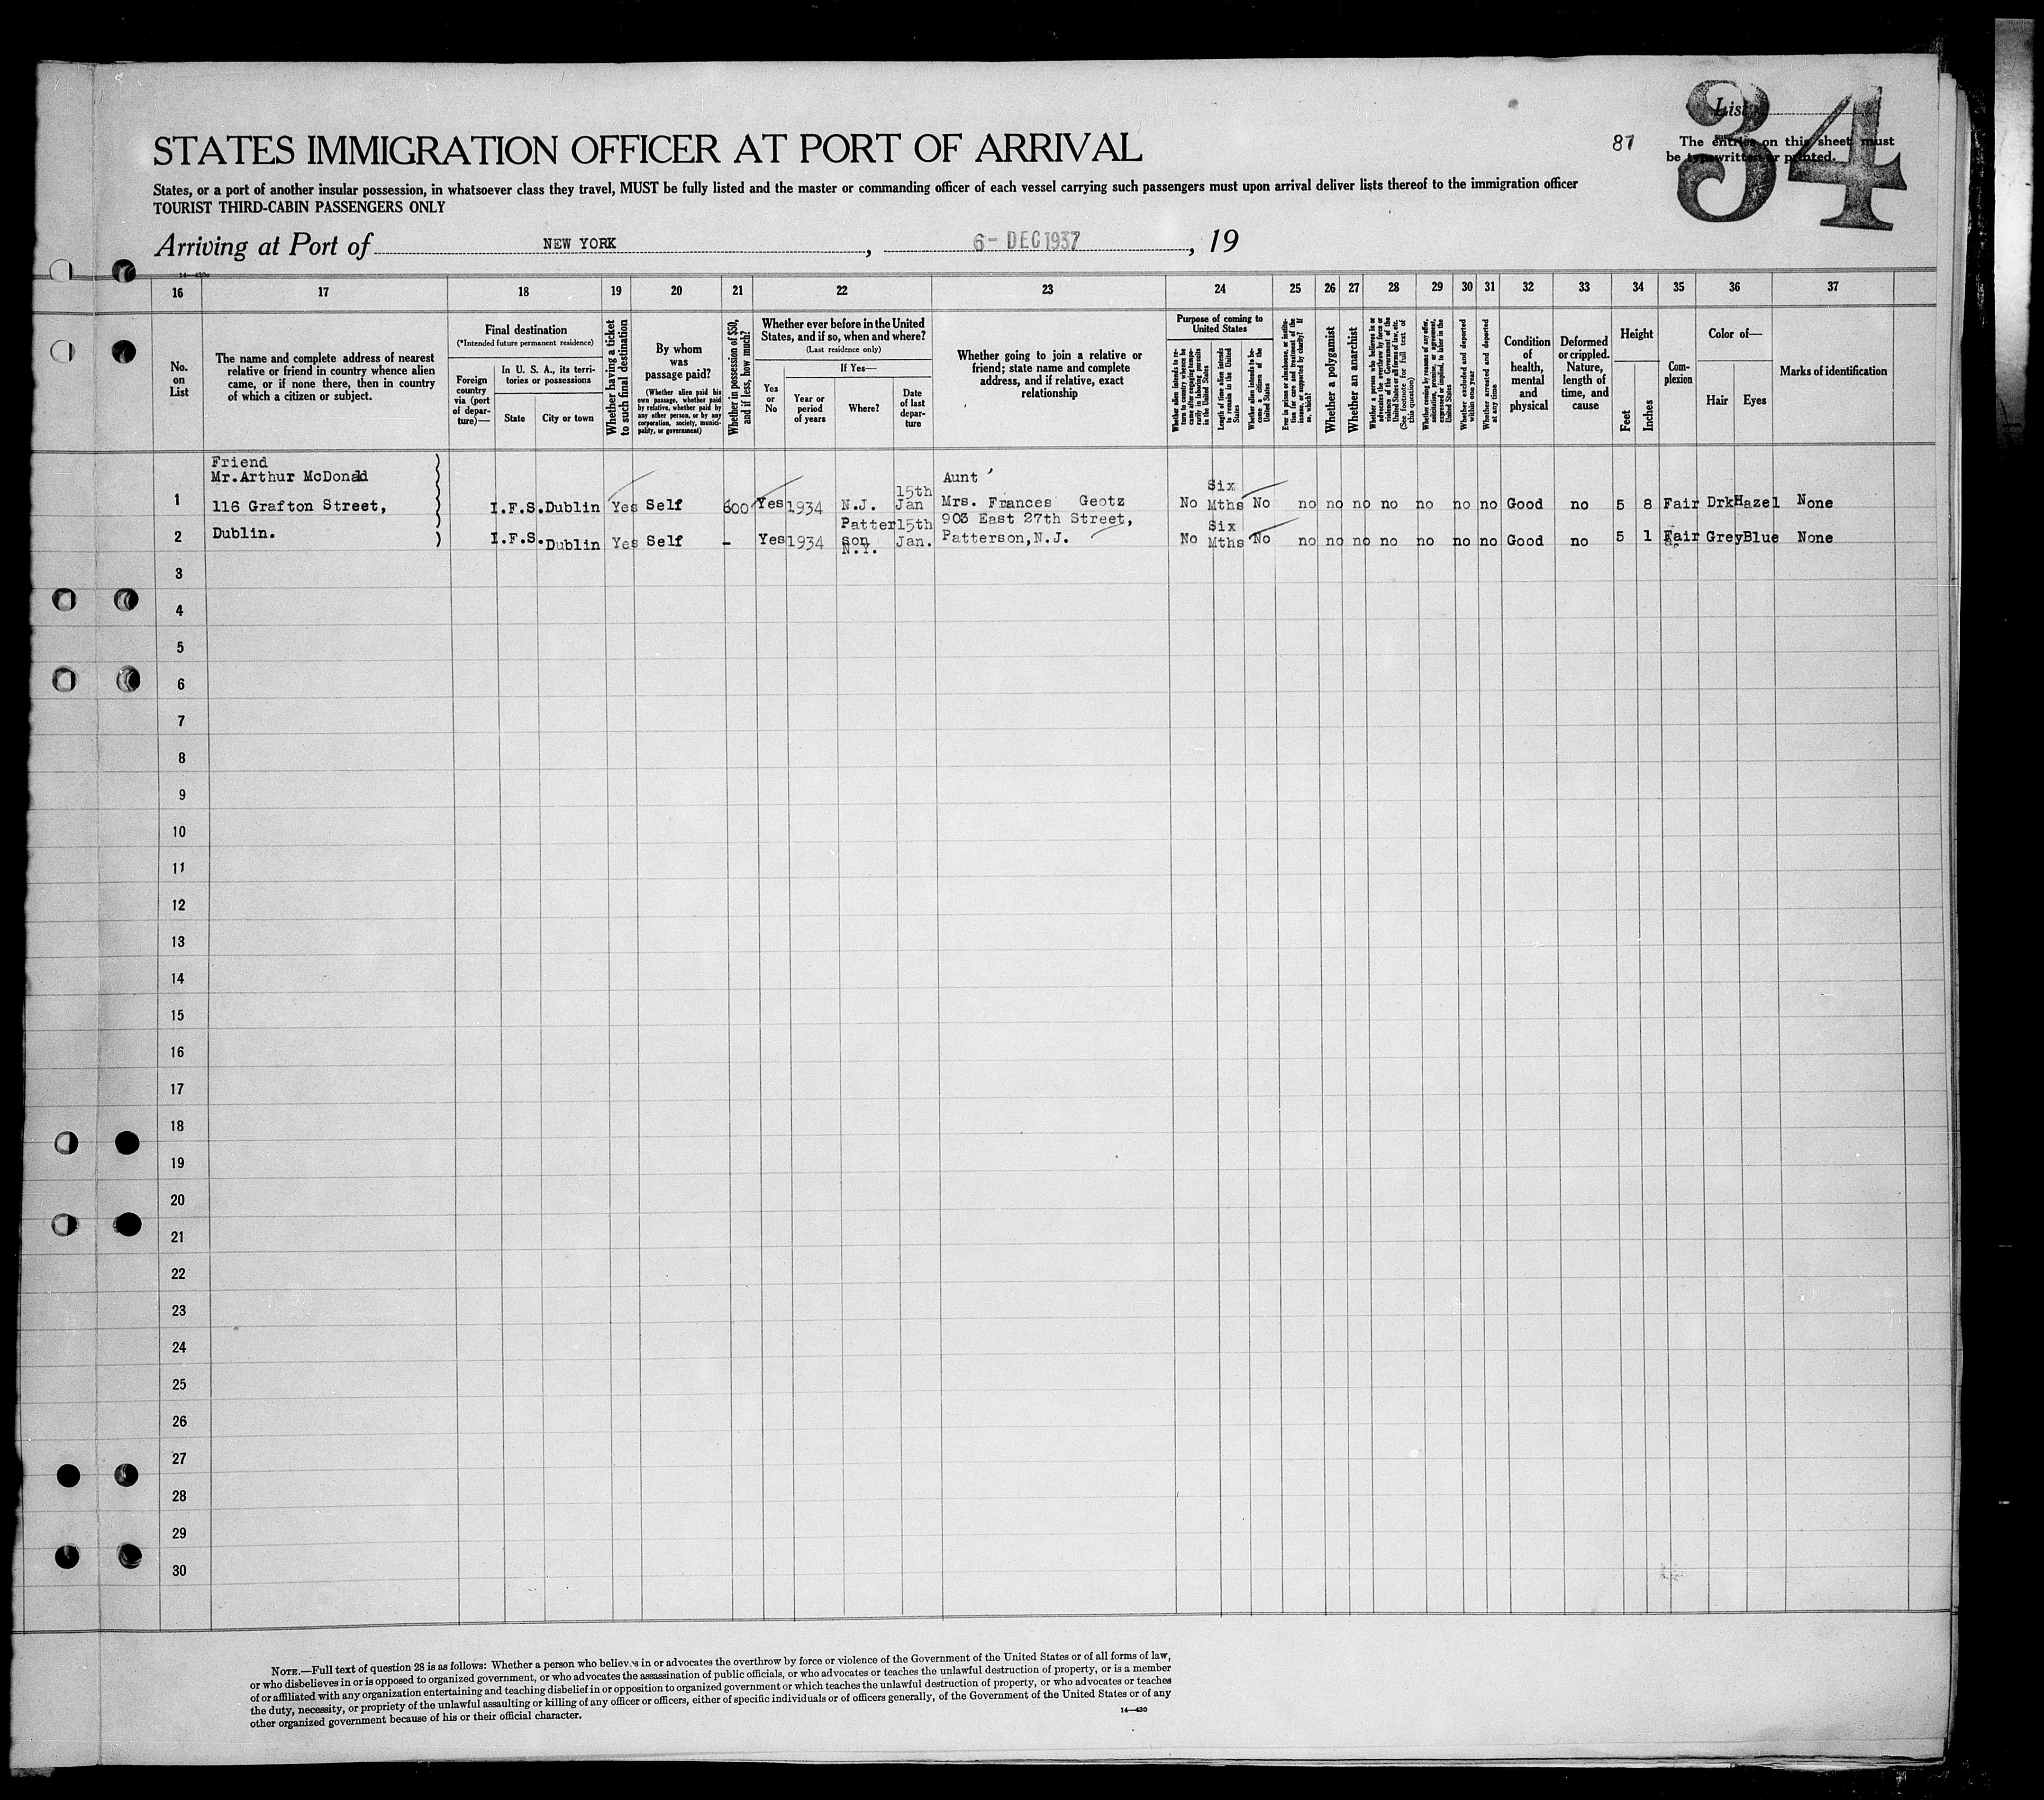 List
34
87
The entries on this sheet must
be typewritten or printed.
STATES IMMIGRATION OFFICER AT PORT OF ARRIVAL
States, or a port of another insular possession, in whatsoever class they travel, MUST be fully listed and the master or commanding officer of each vessel carrying such passengers must upon arrival deliver lists thereof to the immigration officer
TOURIST THIRD-CABIN PASSENGERS ONLY
Arriving at Port of NEW YORK, 6- DEC 1937, 19
16 17 18 19 20 21 22 23 24 25 26 27 28 29 30 31 32 33 34 35 36 37
No.
on
List
The name and complete address of nearest
relative or friend in country whence alien
came, or if none there, then in country
of which a citizen or subject.
Final destination
(*Intended future permanent residence)
Foreign
country
via (port
of depar-
ture)—
In U. S. A., its terri-
tories or possessions
State
City or town
Whether having a ticket
to such final destination
By whom
was
passage paid?
(Whether alien paid his
own passage, whether paid
by relative, whether paid by
any other person, or by any
corporation, society, munici-
pality, or government)
Whether in possession of $50,
and if less, how much?
Whether ever before in the United
States, and if so, when and where?
(Last residence only)
Yes
or
No
If Yes—
Year or
period
of years
Where?
Date
of last
depar-
ture
Whether going to join a relative or
friend; state name and complete
address, and if relative, exact
relationship
Purpose of coming to
United States
Whether alien intends to re-
turn to country whence he
came after engaging tempo-
rarily in laboring pursuits
in the United States
Length of time alien intends
to remain in the United
States
Whether alien intends to be-
come a citizen of the
United States
Ever in prison or almshouse, or institu-
tion for care and treatment of the
insane, or supported by charity? If
so, which?
Whether a polygamist
Whether an anarchist
Whether a person who believes in or
advocates the overthrow by force or
violence of the Government of the
United States or all forms of law, etc.
(See footnote for full text of
this question)
Whether coming by reasons of any offer,
solicitation, promise, or agreement,
expressed or implied, to labor in the
United States
Whether excluded and deported
within one year
Whether arrested and deported
at any time
Condition
of
health,
mental
and
physical
Deformed
or crippled.
Nature,
length of
time, and
cause
Height
Feet
Inches
Com-
plexion
Color of—
Hair
Eyes
Marks of identification
Friend
Mr. Arthur McDonald
116 Grafton Street,
Dublin.
1 I.F.S. Dublin Yes Self 600 Yes 1934 N.J. 15th Jan
Aunt
Mrs. Frances Geotz
903 East 27th Street,
Patterson, N.J.
No Six Mths No no no no no no no no Good no 5 8 Fair Drk Hazel None
2 I.F.S. Dublin Yes Self - Yes 1934 Patterson N.Y. 15th Jan.
No Six Mths No no no no no no no no Good no 5 1 Fair Grey Blue None
3
4
5
6
7
8
9
10
11
12
13
14
15
16
17
18
19
20
21
22
23
24
25
26
27
28
29
30
NOTE.—Full text of question 28 is as follows: Whether a person who believes in or advocates the overthrow by force or violence of the Government of the United States or of all forms of law,
or who disbelieves in or is opposed to organized government, or who advocates the assassination of public officials, or who advocates or teaches the unlawful destruction of property, or is a member
of or affiliated with any organization entertaining and teaching disbelief in or opposition to organized government or which teaches the unlawful destruction of property, or who advocates or teaches
the duty, necessity, or propriety of the unlawful assaulting or killing of any officer or officers, either of specific individuals or of officers generally, of the Government of the United States or of any
other organized government because of his or their official character.
14—430